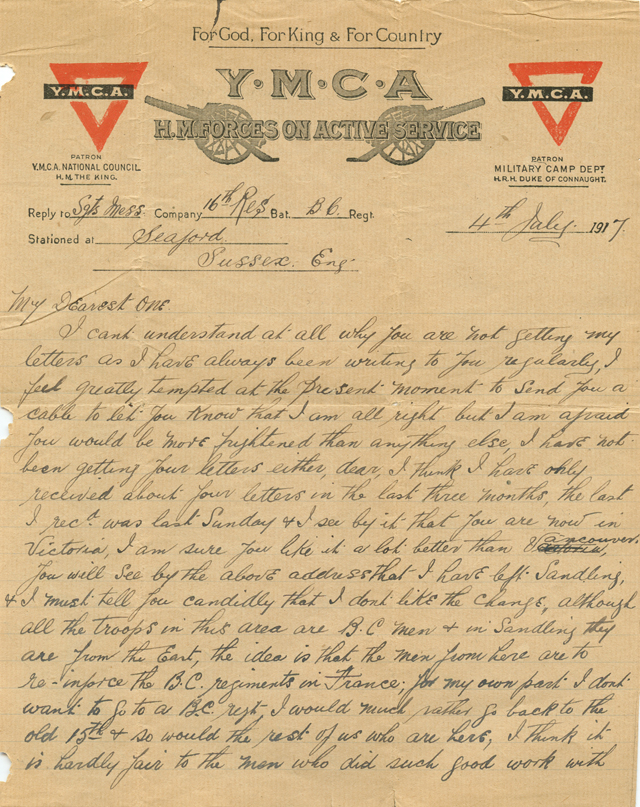 For God, For King & For Country
Y·M·C·A
H.M. FORCES ON ACTIVE SERVICE
Y.M.C.A.
PATRON
Y.M.C.A. NATIONAL COUNCIL
H.M. THE KING.
Y.M.C.A.
PATRON
MILITARY CAMP DEPT
H.R.H. DUKE OF CONNAUGHT.
Reply to Sgts Mess Company 16th Res Bat. B.C. Regt.
Stationed at Seaford
Sussex. Eng
4th July 1917
My Dearest One
I cant understand at all why you are not getting my
letters as I have always been writing to you regularly, I
feel greatly tempted at the present moment to send you a
cable to let you know that I am all right but I am afraid
you would be more frightened than anything else, I have not
been getting your letters either, dear, I think I have only
received about four letters in the last three months, the last
I recd. was last Sunday & I see by it that you are now in
Victoria, I am sure you like it a lot better than Vancouver,
You will see by the above address that I have left Sandling,
& I must tell you candidly that I dont like the change, although
all the troops in this area are B.C men & in Sandling they
are from the East, the idea is that the men from here are to
re-inforce the B.C. regiments in France, for my own part I dont
want to go to a B.C. regt- I would much rather go back to the
old 15th & so would the rest of us who are here, I think it
is hardly fair to the men who did such good work with